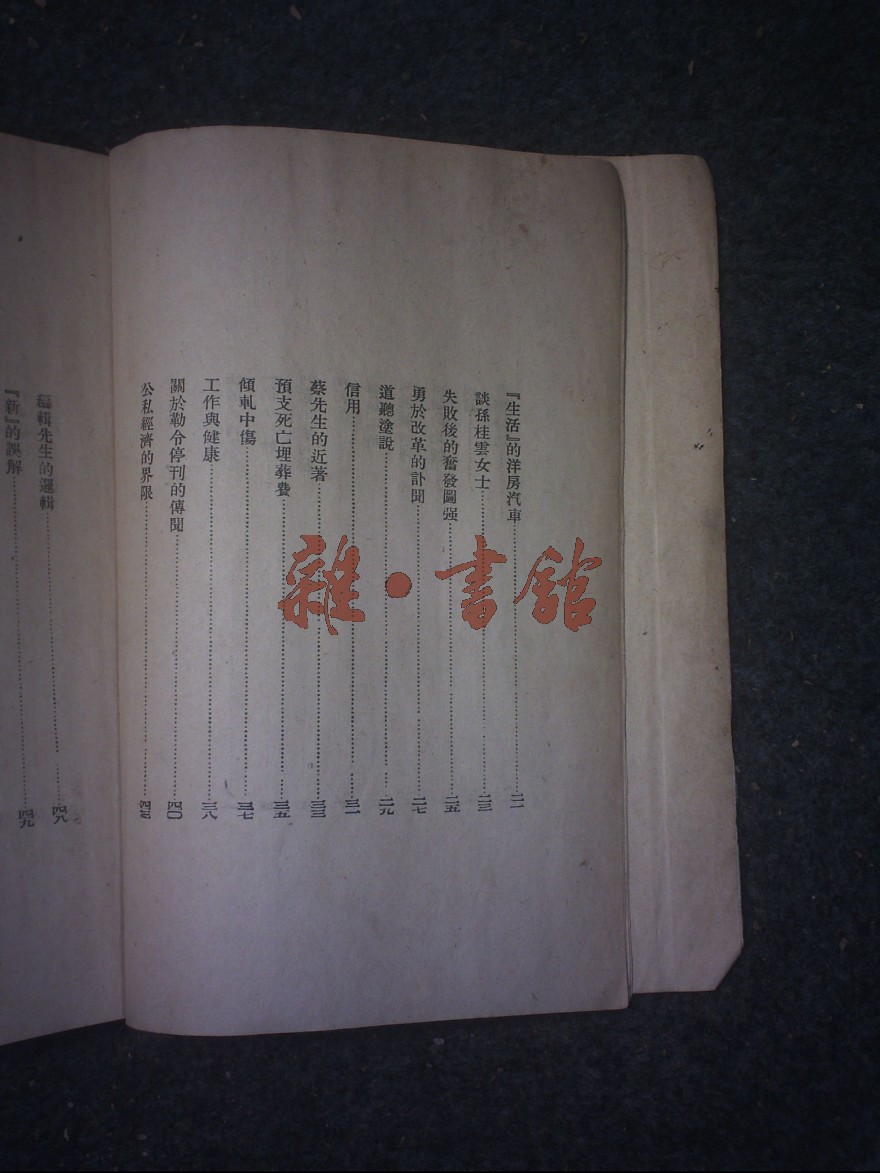 『生活』的洋房汽車⋯⋯二一
談孫桂雲女士⋯⋯二三
失敗後的奮發圖强⋯⋯二五
勇於改革的訃聞⋯⋯二七
道聽塗說⋯⋯二九
信用⋯⋯三一
蔡先生的近著⋯⋯三三
預支死亡埋葬費⋯⋯三五
傾軋中傷⋯⋯三七
工作與健康⋯⋯三八
關於勒令停刊的傳聞⋯⋯四〇
公私經濟的界限⋯⋯
編輯先生的邏輯⋯⋯四八
『新』的誤解⋯⋯四九
雜•書館